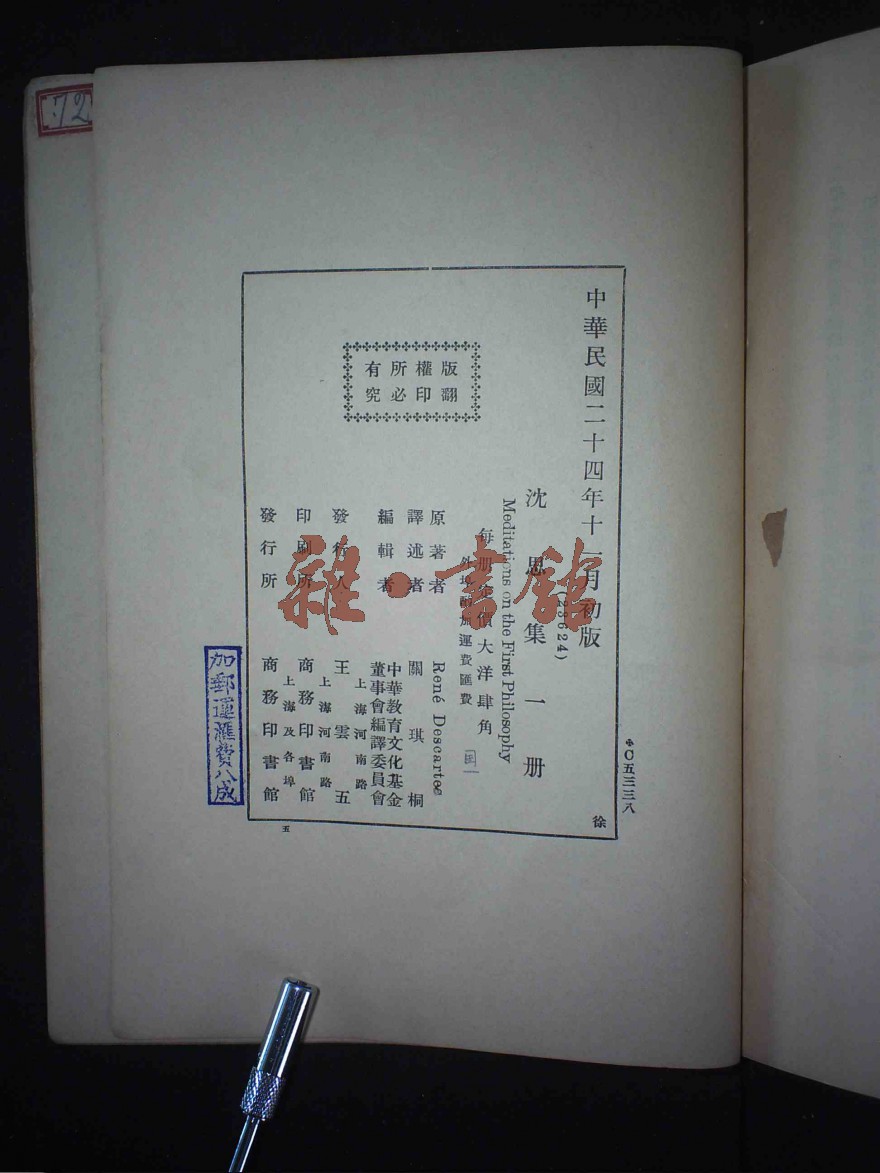 中華民國二十四年十一月初版
(28624)
沈思集一册
Meditations on the First Philosophy
每册定價大洋肆角
外埠酌加運費匯費
原著者 René Descartes
譯述者 關琪桐
編輯者 中華教育文化基金
董事會編譯委員會
發行人 王雲五
上海河南路
印刷所 商務印書館
上海河南路
發行所 商務印書館
上海及各埠
版權所有
翻印必究
✢C五三三八
徐
五
加郵運滙費八成
72
雜·書館